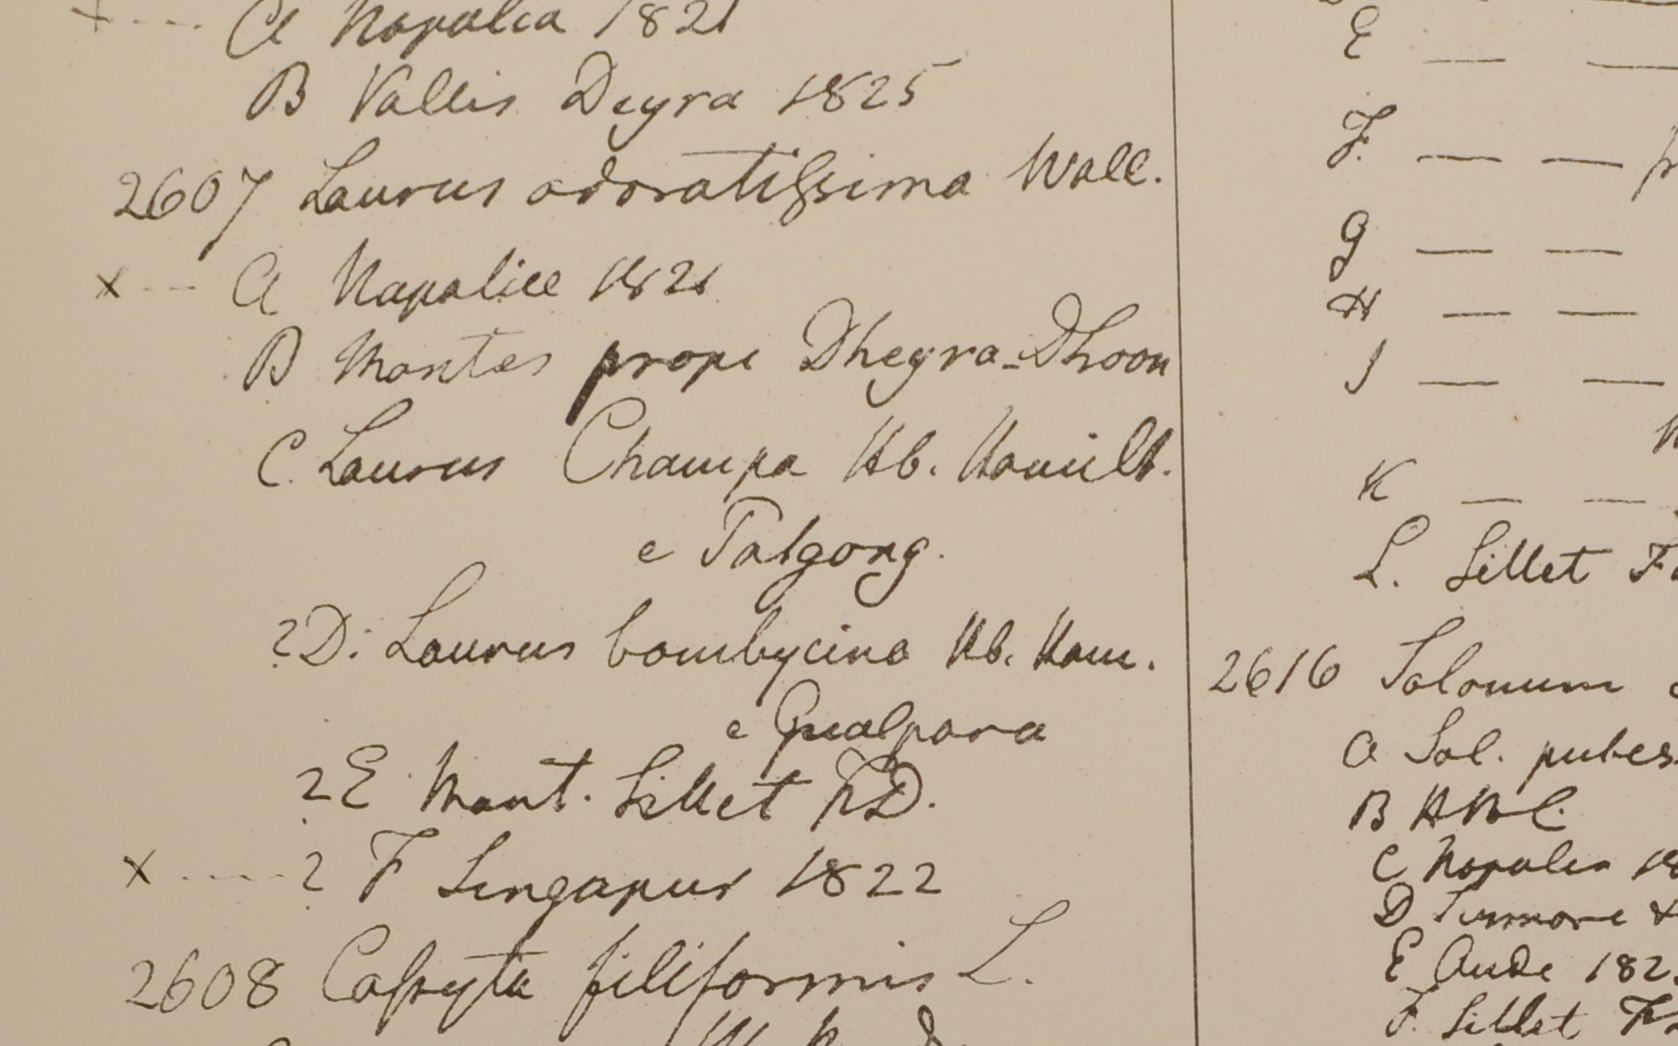 x ---- A Napalia 1821
B Vallis Deyra 1825
2607 Laurus odoratissima Wall.
x --- A Napaliae 1821
B Montes prope Dheyra-Dhoon
C. Laurus Champa Hb. Hamilt.
e Palgong.
?D. Laurus bombycina Hb. Ham.
e Gualpara
? E Mont. Sillet FD.
x ---- ? F Singapur 1822
2608 Cassyta filiformis L.
E — —
F. — —
G — —
H — —
J — —
K — —
L. Sillet
2616 Solanum
A Sol. pubes
B HBC.
C Napalia 18
D
E Oude 182
F. Sillet